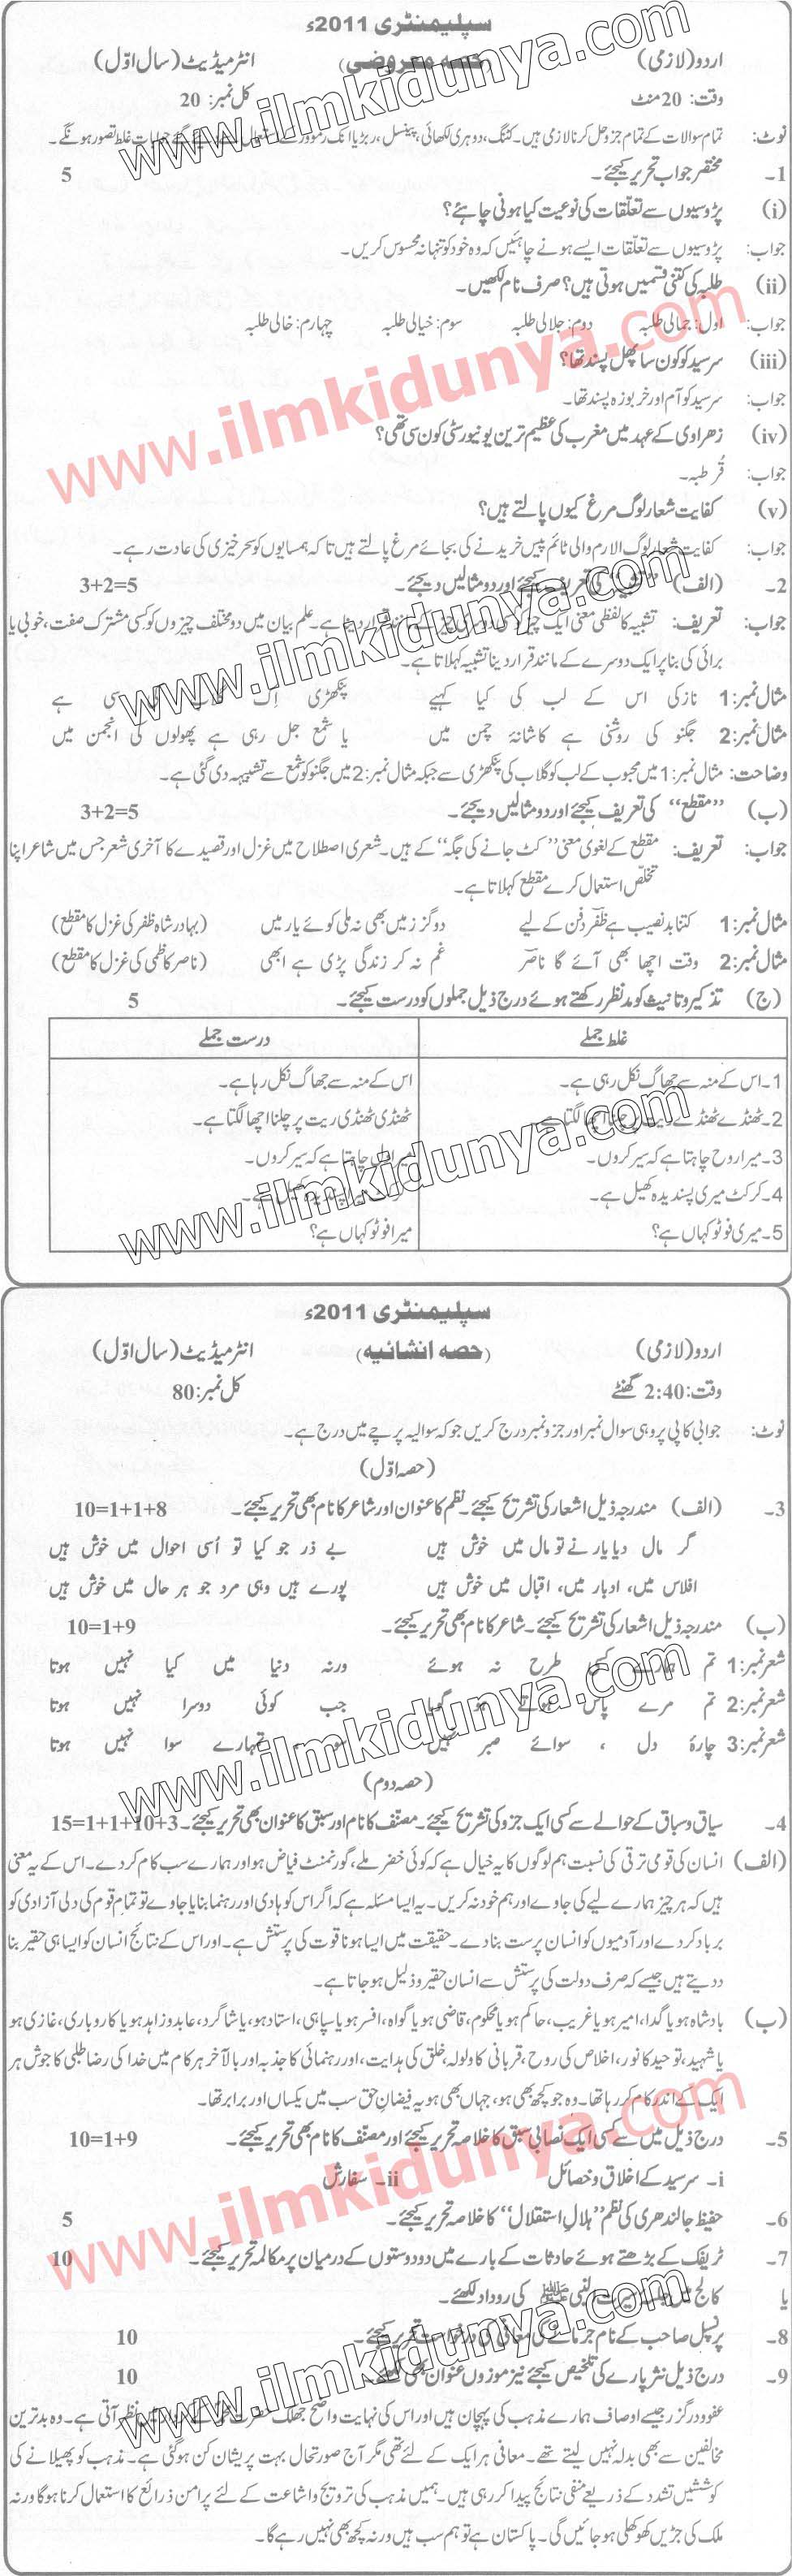 سپلیمنٹری 2011ء
اردو (لازمی) (حصہ معروضی) انٹرمیڈیٹ (سال اوّل)
وقت: 20 منٹ کل نمبر: 20
نوٹ: تمام سوالات کے تمام جزو حل کرنا لازمی ہیں۔ کٹنگ، دوہری لکھائی، پینسل، ربڑ یا انک ریموور کے استعمال جوابات غلط تصور ہونگے۔
1۔ مختصر جواب تحریر کیجئے۔ 5
(i) پڑوسیوں سے تعلقات کی نوعیت کیا ہونی چاہئے؟
جواب: پڑوسیوں سے تعلّقات ایسے ہونے چاہئیں کہ وہ خود کو تنہا نہ محسوس کریں۔
(ii) طلبہ کی کتنی قسمیں ہوتی ہیں؟ صرف نام لکھیں۔
جواب: اول: جمالی طلبہ دوم: جلالی طلبہ سوم: خیالی طلبہ چہارم: خالی طلبہ
(iii) سرسید کو کون سا پھل پسند تھا؟
جواب: سرسید کو آم اور خربوزہ پسند تھا۔
(iv) زھراوی کے عہد میں مغرب کی عظیم ترین یونیورسٹی کون سی تھی؟
جواب: قُرطبہ۔
(v) کفایت شعار لوگ مرغ کیوں پالتے ہیں؟
جواب: کفایت شعار لوگ الارم والی ٹائم پیس خریدنے کی بجائے مرغ پالتے ہیں تاکہ ہمسایوں کو سحر خیزی کی عادت رہے۔
2۔ (الف) "تشبیہ" کی تعریف کیجئے اور دو مثالیں دیجئے۔ 3+2=5
جواب: تعریف: تشبیہ کا لفظی معنی ایک چیز کو دوسری چیز کے مانند قرار دینا ہے۔ علم بیان میں دو مختلف چیزوں کو کسی مشترک صفت، خوبی یا
برائی کی بنا پر ایک دوسرے کے مانند قرار دینا تشبیہ کہلاتا ہے۔
مثال نمبر: 1 نازکی اس کے لب کی کیا کہیے پنکھڑی اِک گلاب کی سی ہے
مثال نمبر: 2 جگنو کی روشنی ہے کاشانۂ چمن میں یا شمع جل رہی ہے پھولوں کی انجمن میں
وضاحت: مثال نمبر: 1 میں محبوب کے لب کو گلاب کی پنکھڑی سے جبکہ مثال نمبر: 2 میں جگنو کو شمع سے تشبیہہ دی گئی ہے۔
(ب) "مقطع" کی تعریف کیجئے اور دو مثالیں دیجئے۔ 3+2=5
جواب: تعریف: مقطع کے لغوی معنی "کٹ جانے کی جگہ" کے ہیں۔ شعری اصطلاح میں غزل اور قصیدے کا آخری شعر جس میں شاعر اپنا
تخلّص استعمال کرے مقطع کہلاتا ہے۔
مثال نمبر: 1 کتنا بدنصیب ہے ظفر دفن کے لیے دو گز زمیں بھی نہ ملی کوئے یار میں (بہادر شاہ ظفر کی غزل کا مقطع)
مثال نمبر: 2 وقت اچھا بھی آئے گا ناصر غم نہ کر زندگی پڑی ہے ابھی (ناصر کاظمی کی غزل کا مقطع)
(ج) تذکیر و تانیث کو مدنظر رکھتے ہوئے درج ذیل جملوں کو درست کیجئے۔ 5
غلط جملے درست جملے
1۔ اس کے منہ سے جھاگ نکل رہی ہے۔ اس کے منہ سے جھاگ نکل رہا ہے۔
2۔ ٹھنڈے ٹھنڈے ریت پر چلنا اچھا لگتا ہے۔ ٹھنڈی ٹھنڈی ریت پر چلنا اچھا لگتا ہے۔
3۔ میرا روح چاہتا ہے کہ سیر کروں۔ میرا چاہتا ہے کہ سیر کروں۔
4۔ کرکٹ میری پسندیدہ کھیل ہے۔ پسندیدہ کھیل ہے۔
5۔ میری فوٹو کہاں ہے؟ میرا فوٹو کہاں ہے؟
سپلیمنٹری 2011ء
اردو (لازمی) (حصہ انشائیہ) انٹرمیڈیٹ (سال اوّل)
وقت: 2:40 گھنٹے کل نمبر: 80
نوٹ: جوابی کاپی پر وہی سوال نمبر اور جزو نمبر درج کریں جو کہ سوالیہ پرچے میں درج ہے۔
(حصہ اوّل)
3۔ (الف) مندرجہ ذیل اشعار کی تشریح کیجئے۔ نظم کا عنوان اور شاعر کا نام بھی تحریر کیجئے۔ 8+1+1=10
گر مال دیا یار نے تو مال میں خوش ہیں بے ذر جو کیا تو اُسی احوال میں خوش ہیں
افلاس میں، ادبار میں، اقبال میں خوش ہیں پورے ہیں وہی مرد جو ہر حال میں خوش ہیں
(ب) مندرجہ ذیل اشعار کی تشریح کیجئے۔ شاعر کا نام بھی تحریر کیجئے۔ 9+1=10
شعر نمبر: 1 تم ہمارے کسی طرح نہ ہوئے ورنہ دنیا میں کیا نہیں ہوتا
شعر نمبر: 2 تم مرے پاس ہوتے ہو گویا جب کوئی دوسرا نہیں ہوتا
شعر نمبر: 3 چارۂ دل، سوائے صبر نہیں سو تمہارے سوا نہیں ہوتا
(حصہ دوم)
4۔ سیاق و سباق کے حوالے سے کسی ایک جزو کی تشریح کیجئے۔ مصنّف کا نام اور سبق کا عنوان بھی تحریر کیجئے۔ 3+10+1+1=15
(الف) انسان کی قومی ترقی کی نسبت ہم لوگوں کا یہ خیال ہے کہ کوئی خضر ملے، گورنمنٹ فیاض ہو اور ہمارے سب کام کر دے۔ اس کے یہ معنی
ہیں کہ ہر چیز ہمارے لیے کی جاوے اور ہم خود نہ کریں۔ یہ ایسا مسئلہ ہے کہ اگر اس کو ہادی اور رہنما بنایا جاوے تو تمام قوم کی دلی آزادی کو
برباد کر دے اور آدمیوں کو انسان پرست بنا دے۔ حقیقت میں ایسا ہونا قوت کی پرستش ہے۔ اور اس کے نتائج انسان کو ایسا ہی حقیر بنا
دیتے ہیں جیسے کہ صرف دولت کی پرستش سے انسان حقیر و ذلیل ہو جاتا ہے۔
(ب) بادشاہ ہو یا گدا، امیر ہو یا غریب، حاکم ہو یا محکوم، قاضی ہو یا گواہ، افسر ہو یا سپاہی، استاد ہو، یا شاگرد، عابد و زاہد ہو یا کاروباری، غازی ہو
یا شہید، توحید کا نور، اخلاص کی روح، قربانی کا ولولہ، خلق کی ہدایت، اور رہنمائی کا جذبہ اور بالآخر ہر کام میں خدا کی رضا طلبی کا جوش ہر
ایک کے اندر کام کر رہا تھا۔ وہ جو کچھ بھی ہو، جہاں بھی ہو یہ فیضانِ حق سب میں یکساں اور برابر تھا۔
5۔ درج ذیل میں سے کسی ایک نصابی سبق کا خلاصہ تحریر کیجئے اور مصنّف کا نام بھی تحریر کیجئے۔ 9+1=10
i۔ سرسید کے اخلاق و خصائل ii۔ سفارش
6۔ حفیظ جالندھری کی نظم "ہلالِ استقلال" کا خلاصہ تحریر کیجئے۔ 5
7۔ ٹریفک کے بڑھتے ہوئے حادثات کے بارے میں دو دوستوں کے درمیان پر مکالمہ تحریر کیجئے۔ 10
یا کالج میں جلسہ سیرت النبی ﷺ کی روداد لکھئے۔
8۔ پرنسپل صاحب کے نام جرمانے کی معافی کی درخواست تحریر کیجئے۔ 10
9۔ درج ذیل نثر پارے کی تلخیص کیجئے نیز موزوں عنوان بھی لکھئے۔ 10
عفو و درگزر جیسے اوصاف ہمارے مذہب کی پہچان ہیں اور اس کی نہایت واضح جھلک حضرت میں نظر آتی ہے۔ وہ بدترین
مخالفین سے بھی بدلہ نہیں لیتے تھے۔ معافی ہر ایک کے لئے تھی مگر آج صورتحال بہت پریشان کن ہو گئی ہے۔ مذہب کو پھیلانے کی
کوششیں تشدد کے ذریعے منفی نتائج پیدا کر رہی ہیں۔ ہمیں مذہب کی ترویج و اشاعت کے لئے پرامن ذرائع کا استعمال کرنا ہوگا ورنہ
ملک کی جڑیں کھوکھلی ہو جائیں گی۔ پاکستان ہے تو ہم سب ہیں ورنہ کچھ بھی نہیں رہے گا۔
www.ilmkidunya.com
www.ilmkidunya.com
www.ilmkidunya.com
www.ilmkidunya.com
www.ilmkidunya.com
www.ilmkidunya.com
www.ilmkidunya.com